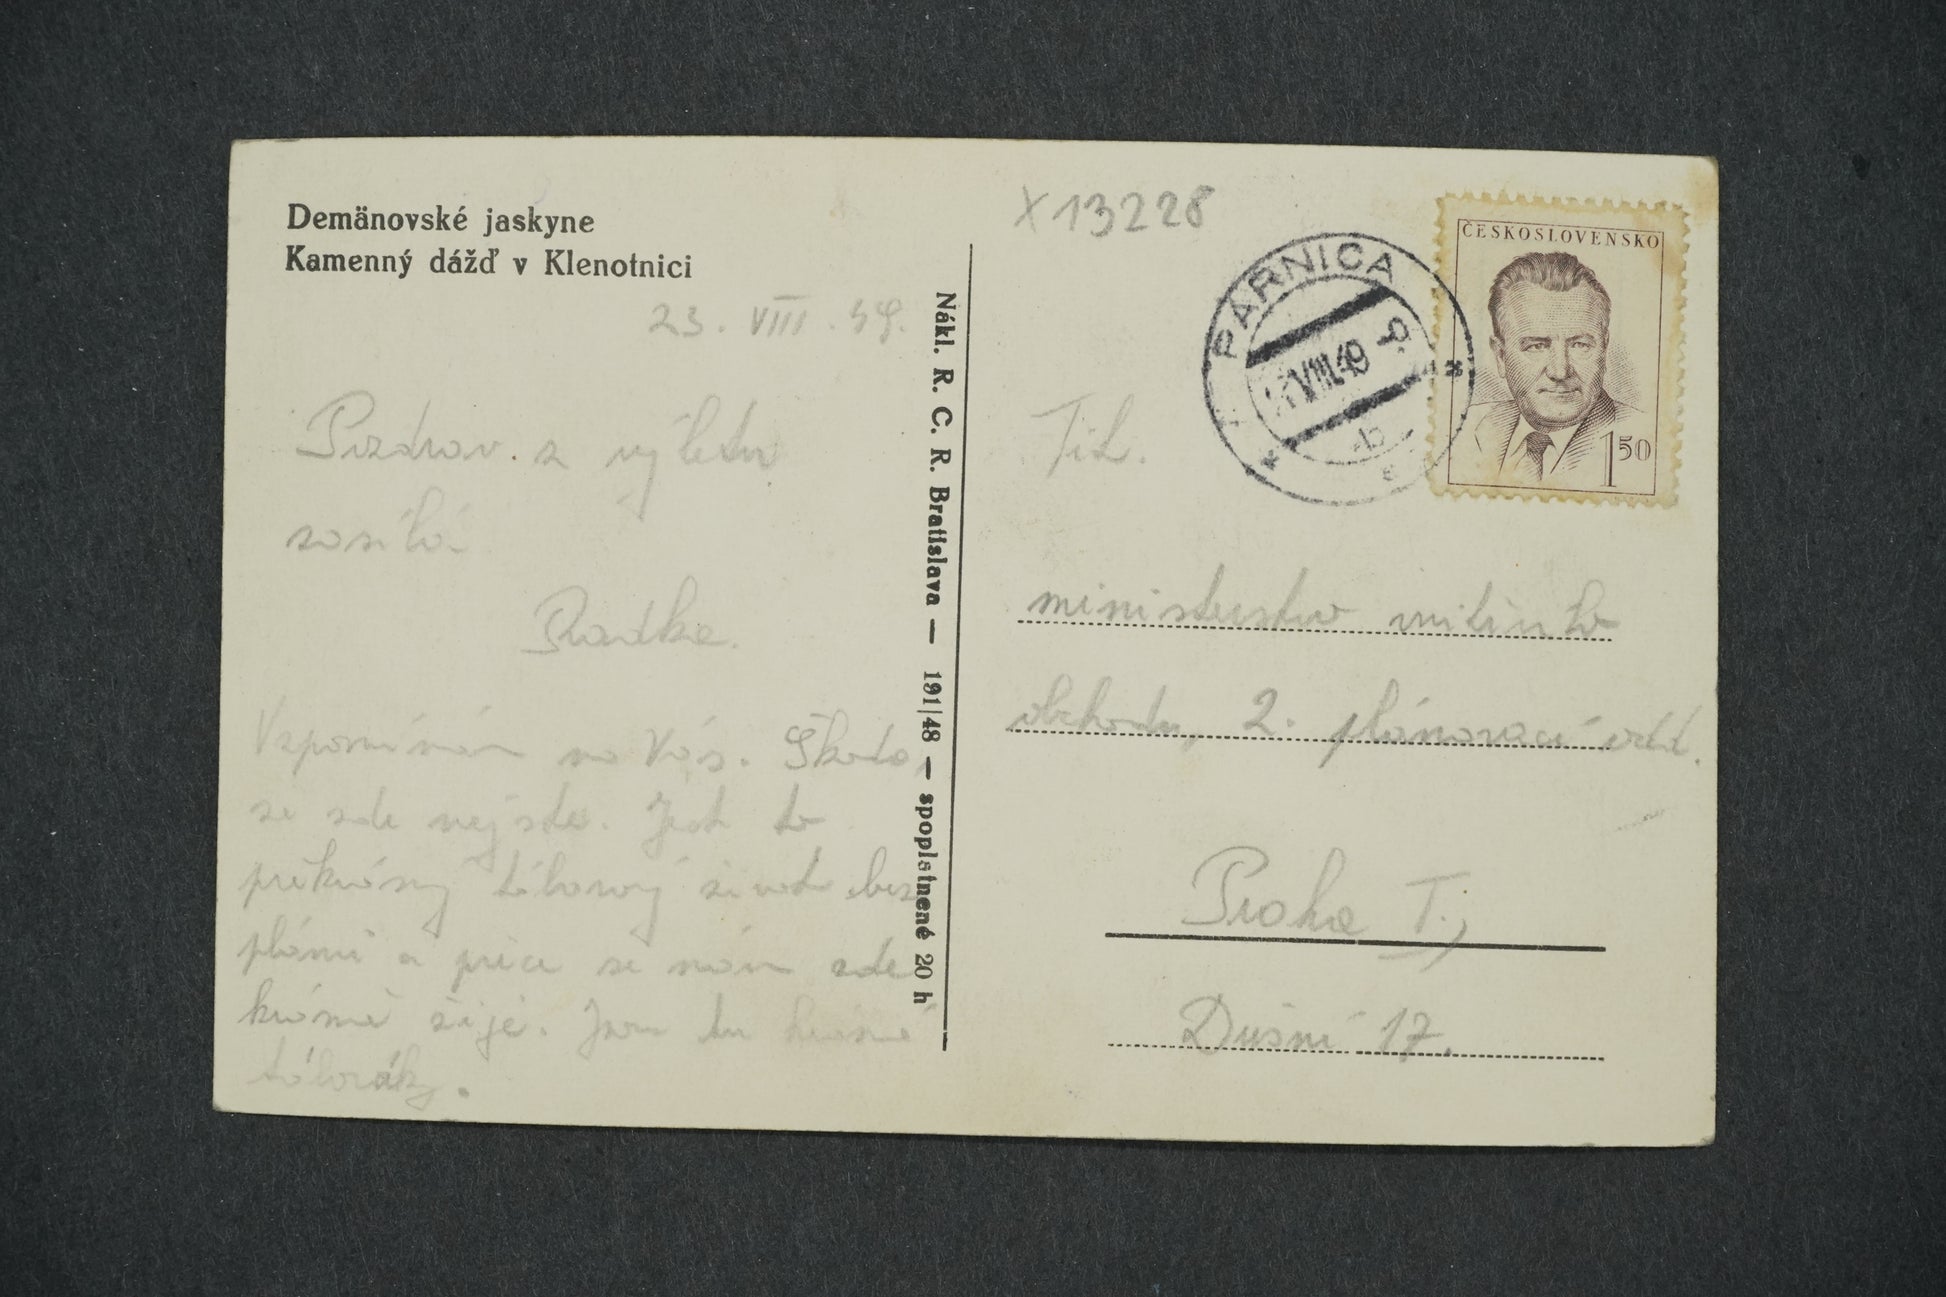 Demänovské jaskyne
Kamenný dážď v Klenotnici
23. VIII. 49.
Pozdrav z výletu
zasílá
Radka.
Vzpomínám na Vás. Škoda,
že zde nejste. Jest to
překrásný táborový život bez
plánů a práce se nám zde
krásně žije. Jsme tu
táboráky.
Nákl. R. C. R. Bratislava — 191|48 — spoplatnené 20 h
X 13228
PÁRNICA
VIII.49
b
ČESKOSLOVENSKO
1 50
Tit.
ministerstvo vnitř. to
obchodu, 2. plánovací odd.
Praha I.,
Dušní 17.